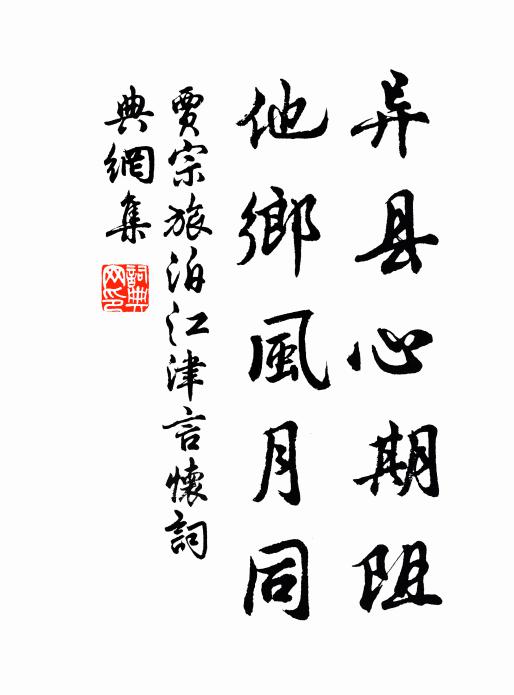 异县心期阻
他鄉風月同
賈宗旅泊江津言懷詞
典網集
詞典网印